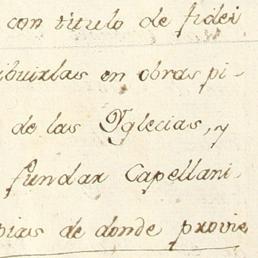 con titulo de fidei
ibuirlas en obras pi-
de las Yglecias, y
fundar Capellani-
pias de donde provie